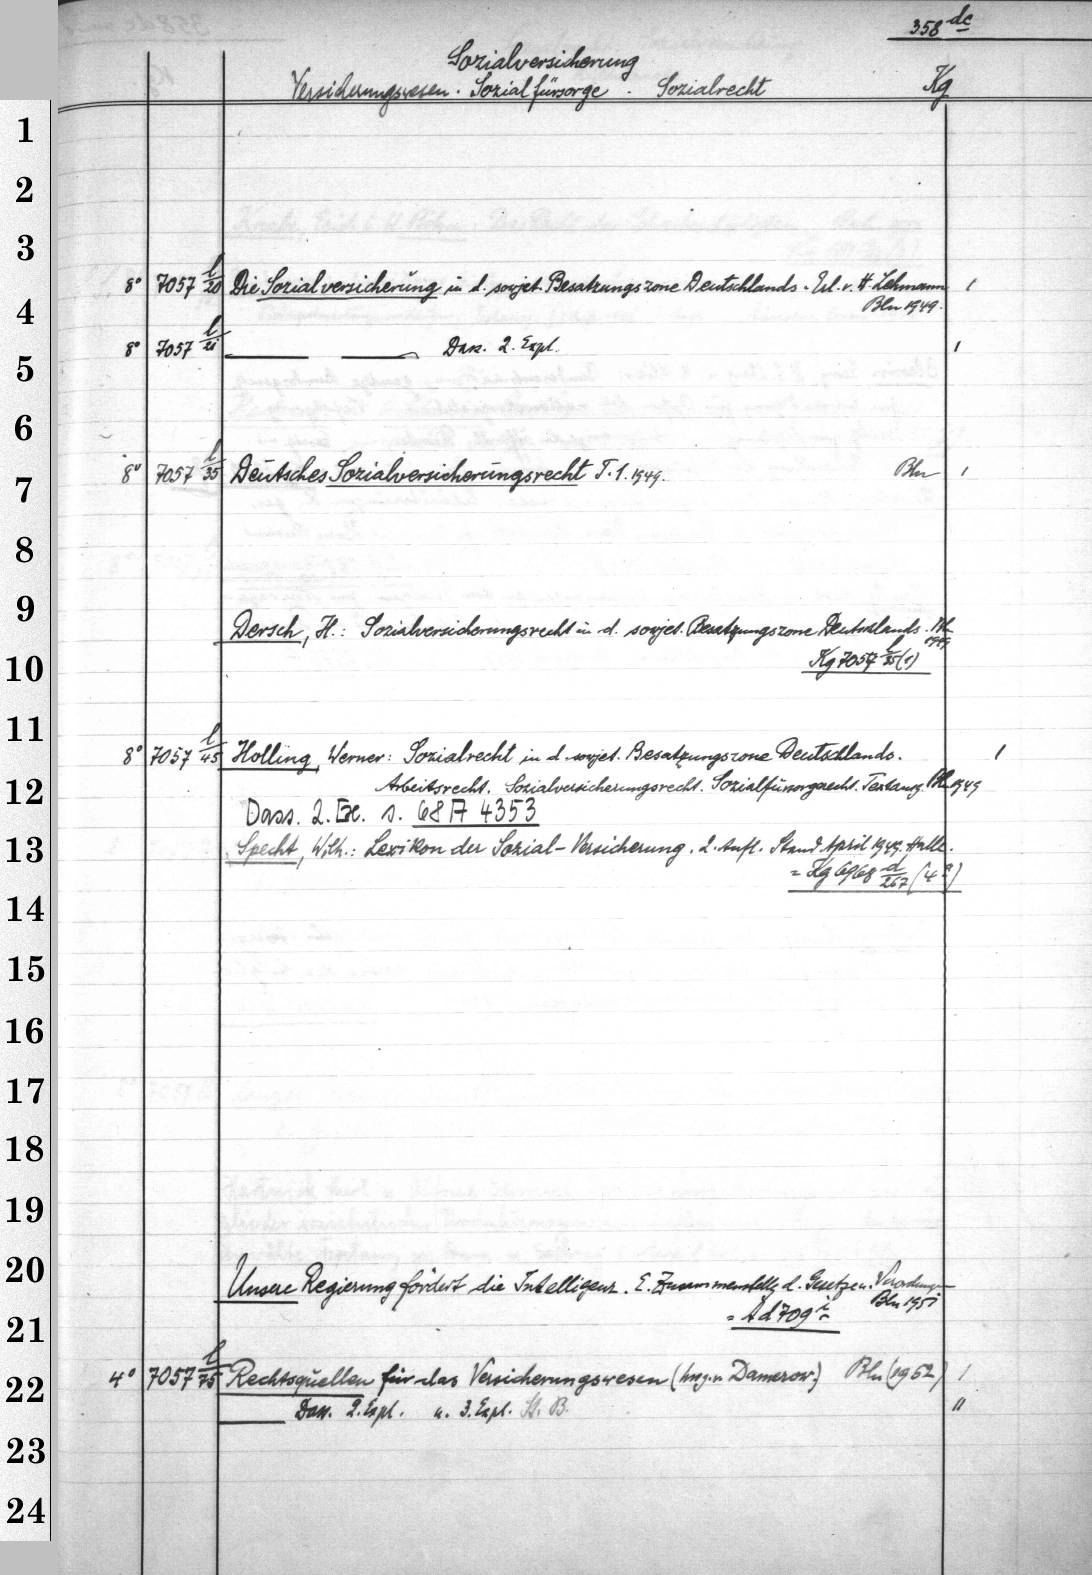 358 dc
Sozialversicherung
Versicherungswesen. Sozialfürsorge. Sozialrecht Kg
1
2
3
8° 7057 l/20 Die Sozialversicherung in d. sowjet. Besatzungszone Deutschlands. Erl. v. H. Lehmann 1
4
Bln 1949.
8° 7057 l/21 Dass. 2. Expl. 1
5
6
8° 7057 l/35 Deutsches Sozialversicherungsrecht T. 1. 1949. Bln 1
7
8
9
Dersch, H.: Sozialversicherungsrecht in d. sowjet. Besatzungszone Deutschlands. Bln 1949
10
Kg 7057 l/35 (1)
11
8° 7057 l/45 Holling, Werner: Sozialrecht in d. sowjet. Besatzungszone Deutschlands. 1
12
Arbeitsrecht. Sozialversicherungsrecht. Sozialfürsorgerecht. Textausg. Bln 1949
Dass. 2. Ex. s. 68 A 4353
13
Specht, Wilh.: Lexikon der Sozial-Versicherung. 2. Aufl. Stand April 1949. Halle.
= Kg 6968 d/267 (4°)
14
15
16
17
18
19
20
Unsere Regierung fördert die Intelligenz. E. Zusammenstellg d. Gesetze u. Verordnungen
Bln 1951
= Ad 709 i
21
4° 7057 l/75 Rechtsquellen für das Versicherungswesen (hrsg. v. Damerow.) Bln (1952) 1
22
Dass. 2. Expl. u. 3. Expl. St. B. 11
23
24